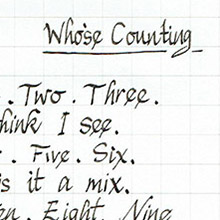 Who'se Counting
. Two . Three.
think I see.
. Five . Six.
is it a mix.
Eight Nine